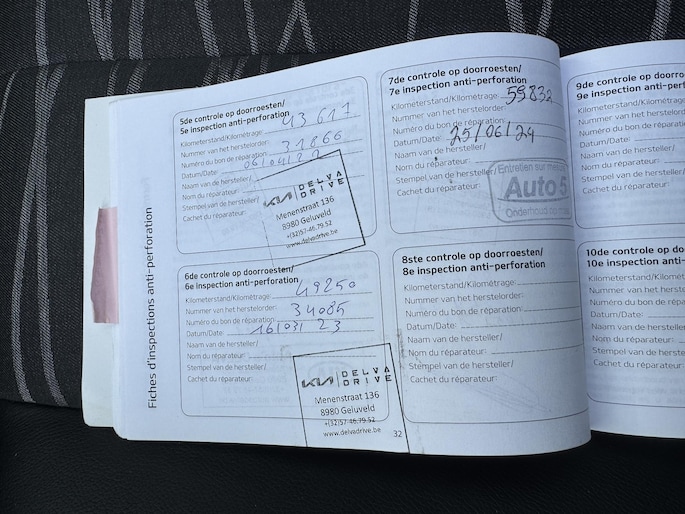 Fiches d'inspections anti-perforation
5de controle op doorroesten/
5e inspection anti-perforation
Kilometerstand/Kilométrage: 43617
Nummer van het herstelorder:
Numéro du bon de réparation: 31866
Datum/Date: 06/04/22
Naam van de hersteller/
Nom du réparateur:
Stempel van de hersteller/
Cachet du réparateur:
KIA DELVA
DRIVE
Menenstraat 136
8980 Geluveld
+(32)57-46.79.52
www.delvadrive.be
6de controle op doorroesten/
6e inspection anti-perforation
Kilometerstand/Kilométrage: 49250
Nummer van het herstelorder:
Numéro du bon de réparation: 34085
Datum/Date: 16/03/23
Naam van de hersteller/
Nom du réparateur:
Stempel van de hersteller/
Cachet du réparateur:
KIA DELVA
DRIVE
Menenstraat 136
8980 Geluveld
+(32)57-46.79.52
www.delvadrive.be
32
7de controle op doorroesten/
7e inspection anti-perforation
Kilometerstand/Kilométrage: 59832
Nummer van het herstelorder:
Numéro du bon de réparation:
Datum/Date: 25/06/24
Naam van de hersteller/
Nom du réparateur:
Stempel van de hersteller/
Cachet du réparateur:
Entretien sur
Auto 5
Onderhoud
8ste controle op doorroesten/
8e inspection anti-perforation
Kilometerstand/Kilométrage:
Nummer van het herstelorder:
Numéro du bon de réparation:
Datum/Date:
Naam van de hersteller/
Nom du réparateur:
Stempel van de hersteller/
Cachet du réparateur:
9de controle op
9e inspection anti-
Kilometerstand/Kilométrage:
Nummer van het
Numéro du bon de
Datum/Date:
Naam van de
Nom du réparateur:
Stempel van de
Cachet du réparateur:
10de controle op
10e inspection
Kilometerstand/
Nummer van het
Numéro du bon de
Datum/Date:
Naam van de
Nom du réparateur:
Stempel van de
Cachet du réparateur: